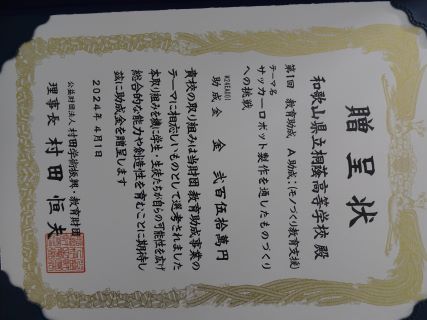 贈呈状
和歌山県立桐蔭高等学校 殿
第1回 教育助成 A助成:(モノづくり教育支援)
テーマ名
サッカーロボット製作を通したものづくり
への挑戦
M24EA001
助成金 金 弐百伍拾萬円
貴校の取り組みは当財団 教育助成事業の
テーマに相応しいものとして選考されました
本取り組みを機に学生・生徒たちが自らの可能性を広げ
総合的な能力や創造性を育むことに期待し
茲に助成金を贈呈します
2024年4月1日
公益財団法人 村田学術振興・教育財団
理事長 村田 恒夫